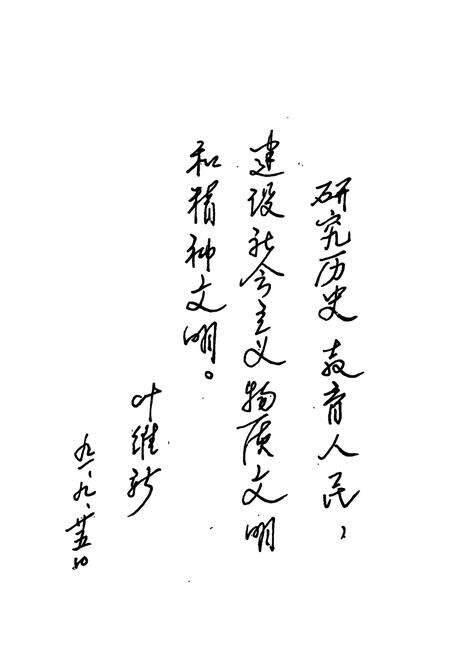 研究历史 教育人民，
建设社会主义物质文明
和精神文明。
叶维新
九一、九、廿五日